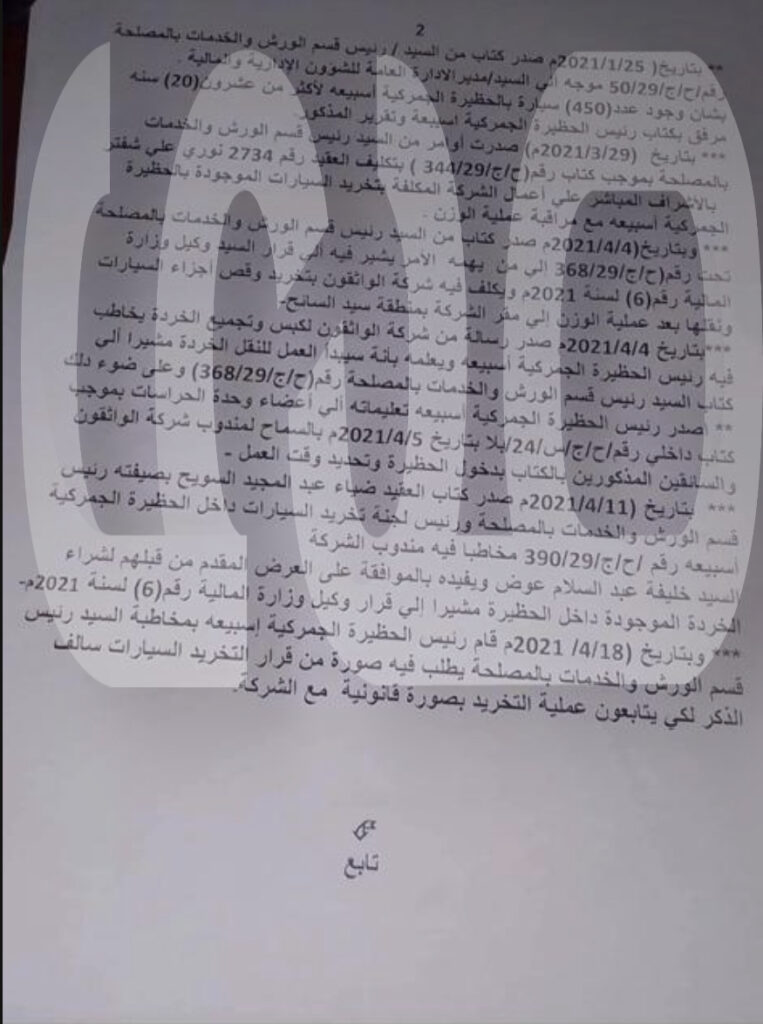 2
** بتاريخ( 2021/1/25م صدر كتاب من السيد / رئيس قسم الورش والخدمات بالمصلحة
رقم/ح/ج/50/29 موجه الي السيد/مديرالادارة العامة للشؤون الإدارية والمالية .
بشان وجود عدد(450) سيارة بالحظيرة الجمركية أسبيعه لأكثر من عشرون(20) سنه
مرفق بكتاب رئيس الحظيرة الجمركية اسبيعة وتقرير المذكور.
*** بتاريخ (2021/3/29م) صدرت أوامر من السيد رئيس قسم الورش والخدمات
بالمصلحة بموجب كتاب رقم(ح/ج/344/29 ) بتكليف العقيد رقم 2734 نوري علي شفتر
بالأشراف المباشر علي أعمال الشركة المكلفة بتخريد السيارات الموجودة بالحظيرة
الجمركية أسبيعه مع مراقبة عملية الوزن .
*** وبتاريخ(2021/4/4م صدر كتاب من السيد رئيس قسم الورش والخدمات بالمصلحة
تحت رقم(ح/ج/368/29 الي من يهمه الامر يشير فيه الي قرار السيد وكيل وزارة
المالية رقم(6) لسنة 2021م ويكلف فيه شركة الواثقون بتخريد وقص اجزاء السيارات
ونقلها بعد عملية الوزن إلي مقر الشركة بمنطقة سيد السائح-
***بتاريخ 2021/4/4م صدر رسالة من شركة الواثقون لكبس وتجميع الخردة يخاطب
فيه رئيس الحظيرة الجمركية أسبيعه ويعلمه بانة سيبدأ العمل للنقل الخردة مشيرا ألي
كتاب السيد رئيس قسم الورش والخدمات بالمصلحة رقم(ح/ج/368/29) وعلى ضوء دلك
** أصدر رئيس الحظيرة الجمركية أسبيعه تعليماته ألي أعضاء وحدة الحراسات بموجب
كتاب داخلي رقم/ح/ج/س/24/بلا بتاريخ 2021/4/5م بالسماح لمندوب شركة الواثقون
والسائقين المذكورين بالكتاب بدخول الحظيرة وتحديد وقت العمل -
*** بتاريخ (2021/4/11م صدر كتاب العقيد ضياء عبد المجيد السويح بصيفته رئيس
قسم الورش والخدمات بالمصلحة ورئيس لجنة تخريد السيارات داخل الحظيرة الجمركية
أسبيعه رقم /ح/ج/390/29 مخاطبا فيه مندوب الشركة
السيد خليفة عبد السلام عوض ويفيده بالموافقة على العرض المقدم من قبلهم لشراء
الخردة الموجودة داخل الحظيرة مشيرا إلي قرار وكيل وزارة المالية رقم(6) لسنة 2021م-
*** وبتاريخ (4/18/ 2021م قام رئيس الحظيرة الجمركية إسبيعه بمخاطبة السيد رئيس
قسم الورش والخدمات بالمصلحة يطلب فيه صورة من قرار التخريد السيارات سالف
الذكر لكي يتابعون عملية التخريد بصورة قانونية مع الشركة.
تابع